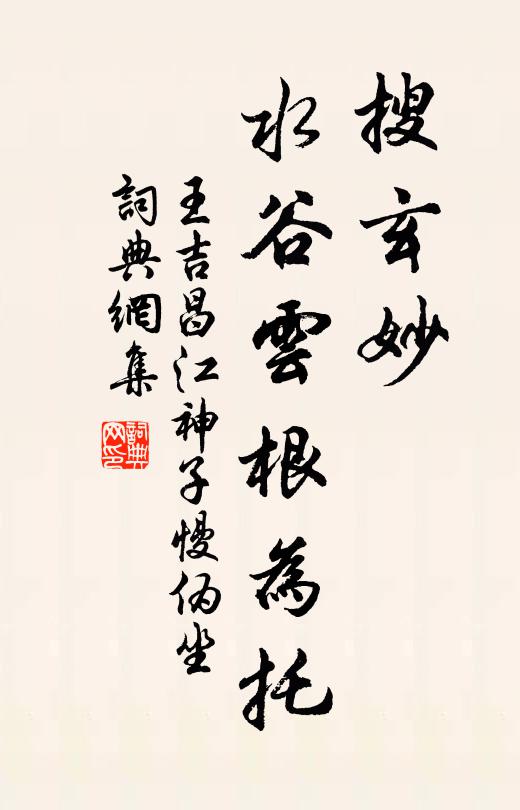 搜玄妙
水谷雲根為托
王吉昌江神子慢㑂坐
詞典網集
詞典網印